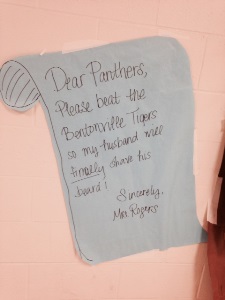 Dear Panthers,
Please beat the
Bentonville Tigers
so my husband will
finally shave his
beard!
Sincerely,
Mrs. Rogers